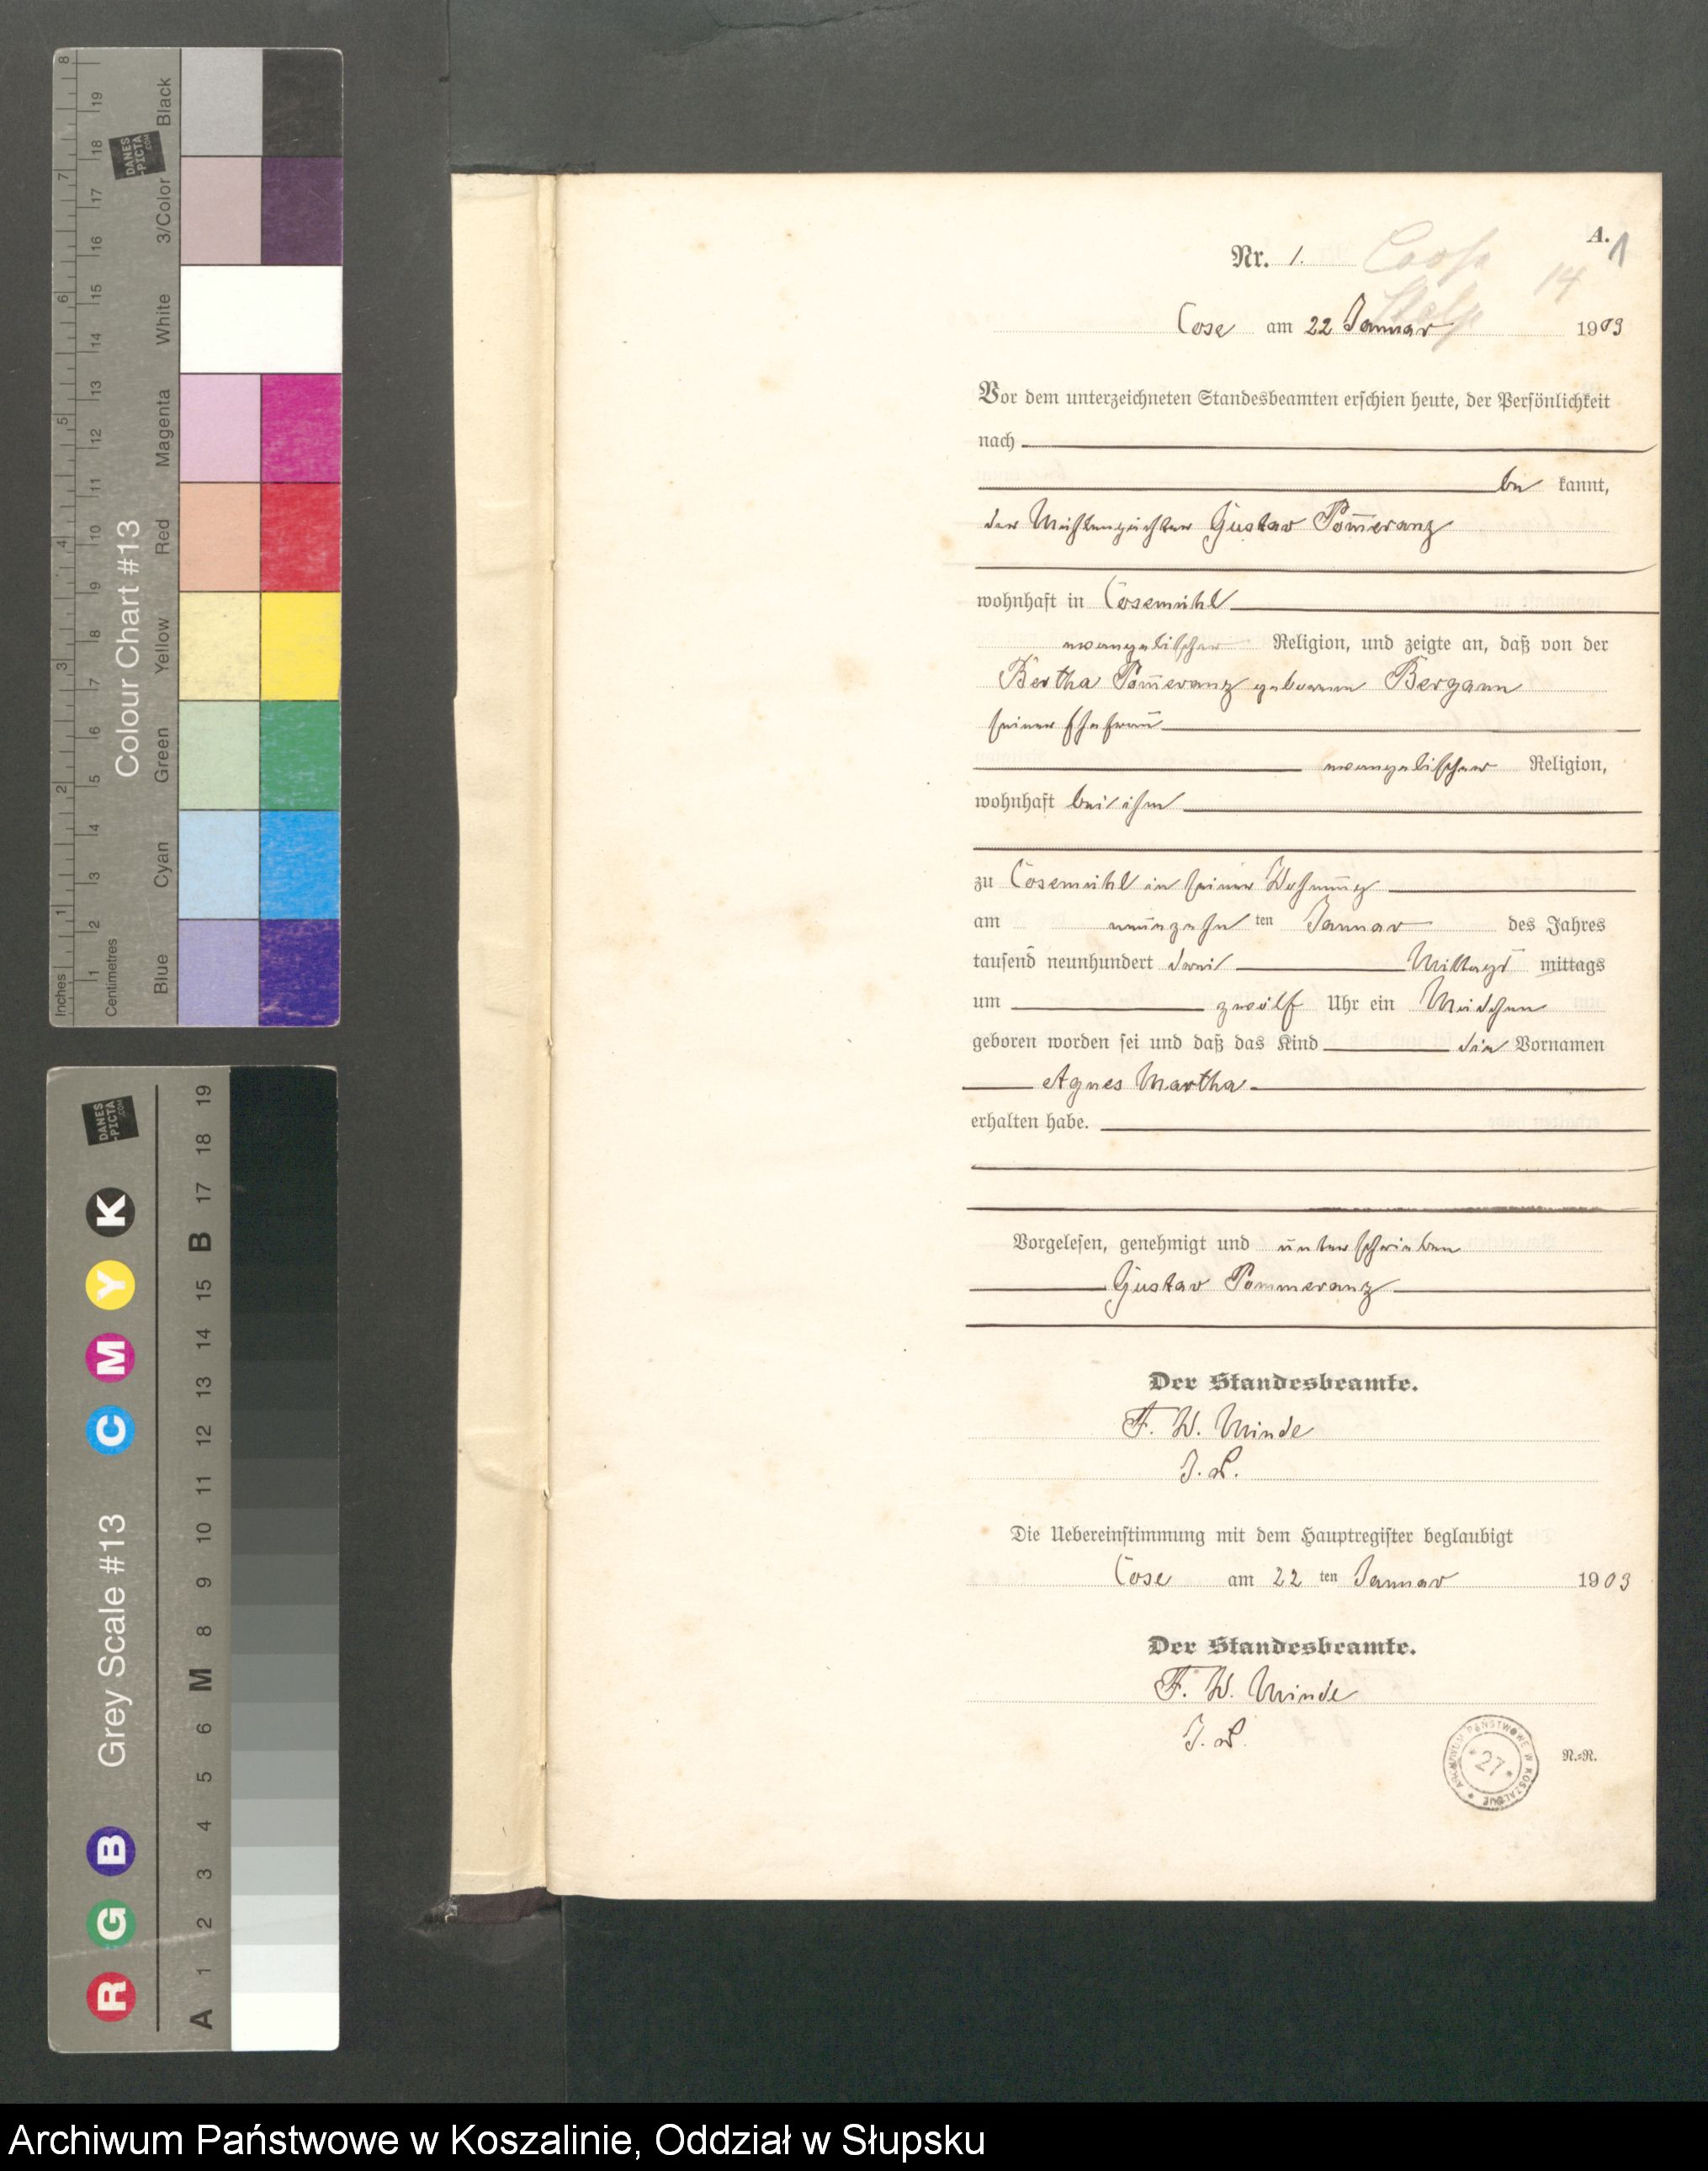 Nr. 1.
A. 1
Coose
14
Stolp
Cose am 22 Januar 1903
Vor dem unterzeichneten Standesbeamten erschien heute, der Persönlichkeit
nach
be kannt,
der Mühlenpächter Gustav Pom̄eranz
wohnhaft in Cosemühl
evangelischer Religion, und zeigte an, daß von der
Bertha Pom̄eranz geborenen Bergann
seiner Ehefrau
evangelischer Religion,
wohnhaft bei ihm
zu Cosemühl in seiner Wohnung
am neunzehn ten Januar des Jahres
tausend neunhundert drei Mittags mittags
um zwölf Uhr ein Mädchen
geboren worden sei und daß das Kind die Vornamen
Agnes Martha
erhalten habe.
Vorgelesen, genehmigt und unterschrieben
Gustav Pommeranz
Der Standesbeamte.
F. W. Minde
Die Uebereinstimmung mit dem Hauptregister beglaubigt
Cose am 22 ten Januar 1903
Der Standesbeamte.
F. W. Minde
ARCHIWUM PAŃSTWOWE W KOSZALINIE
* 27 *
N.=N.
Inches
Centimetres
8 7 6 5 4 3 2 1
19 18 17 16 15 14 13 12 11 10 9 8 7 6 5 4 3 2 1
DANES
-PICTA
.COM
Colour Chart #13
Blue Cyan Green Yellow Red Magenta White 3/Color Black
DANES
-PICTA
.COM
Grey Scale #13
R G B C M Y K
A 1 2 3 4 5 6 M 8 9 10 11 12 13 14 15 B 17 18 19
Archiwum Państwowe w Koszalinie, Oddział w Słupsku